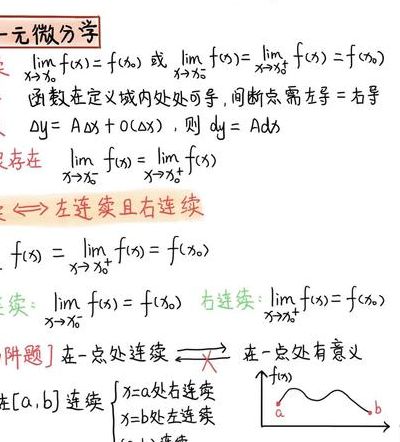 一元微分学
lim x→x₀ f(x) = f(x₀) 或 lim x→x₀⁻ f(x) = lim x→x₀⁺ f(x) = f(x₀)
函数在定义域内处处可导,间断点需左导=右导
Δy = AΔx + o(Δx),则 dy = Adx
存在 lim x→x₀⁻ f(x) = lim x→x₀⁺ f(x)
⟺ 左连续且右连续
f(x) = lim x→x₀⁺ f(x) = f(x₀)
连续: lim x→x₀⁻ f(x) = f(x₀) 右连续: lim x→x₀⁺ f(x) = f(x₀)
阱题] 在一点处连续 ⇄ 在一点处有意义
在[a,b]连续 { x=a处右连续
x=b处左连续
f(x)
a b